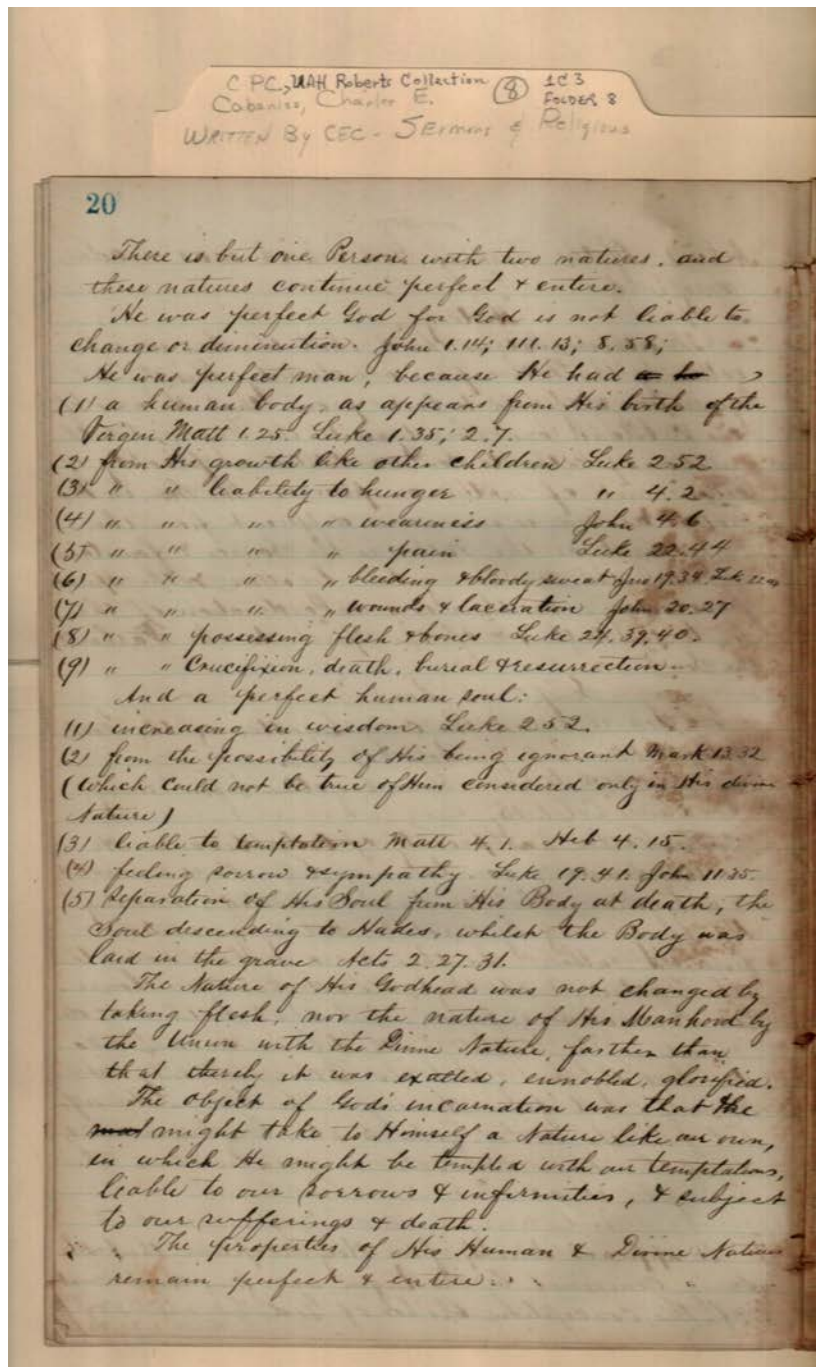 C PC, UAH Roberts Collection 8 1C3
Cabaniss, Charles E. FOLDER 8
WRITTEN By CEC - SErmons & Religious
20
There is but one Person with two natures. and
these natures continue perfect & entire.
He was perfect God for God is not liable to
change or diminution. John 1.14; 111. 13; 8. 58;
He was perfect man, because He had
(1) a human body. as appears from His birth of the
Virgen Matt 1.25. Luke 1.35; 2.7.
(2) from His growth like other children Luke 2 52
(3) " " liability to hunger " 4.2
(4) " " " " weariness John 4.6
(5) " " " " pain Luke 22.44
(6) " " " " bleeding & bloody sweat Jno 19.34. Luk
(7) " " " " wounds & laceration John 20.27
(8) " " possessing flesh & bones Luke 24.39,40.
(9) " " Crucifixion, death, burial & resurrection.
And a perfect human soul:
(1) increasing in wisdom Luke 2 52.
(2) from the possibility of His being ignorant Mark 13.32
(which could not be true of Him considered only in His divine
Nature)
(3) liable to temptation Matt 4.1. Heb 4.15.
(4) feeling sorrow & sympathy Luke 19.41. John 11.35.
(5) Separation of His Soul from His Body at death, the
Soul descending to Hades, whilst the Body was
laid in the grave Acts 2.27.31.
The Nature of His Godhead was not changed by
taking flesh, nor the nature of His Manhood by
the Union with the Divine Nature, farther than
that thereby it was exalted, ennobled, glorified.
The object of God's incarnation was that He
might take to Himself a Nature like our own,
in which He might be tempted with our temptations,
liable to our sorrows & infirmities, & subject
to our sufferings & death.
The properties of His Human & Divine Natures
remain perfect & entire.